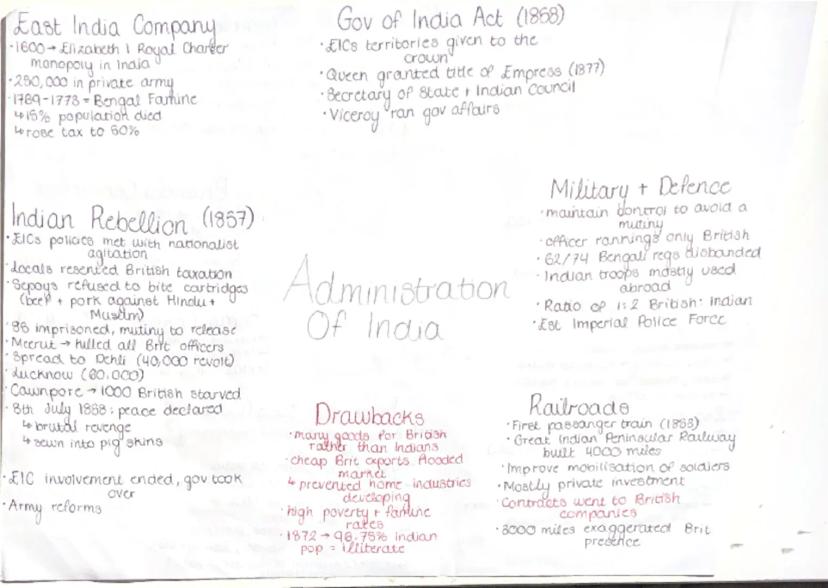 East India Company
·1600→Elizabeth I Royal Charter
monopoly in India
·250,000 in private army
·1769-1773 = Bengal Famine
↳15% population died
↳rose tax to 50%
Gov of India Act (1858)
·EICs territories given to the
crown
·Queen granted title of Empress (1877)
·Secretary of State + Indian Council
·Viceroy ran gov affairs
Indian Rebellion (1857)
·EICs policies met with nationalist
agitation
·Locals resented British taxation
·Sepoys refused to bite cartridges
(beef + pork against Hindu +
Muslim)
·85 imprisoned, mutiny to release
·Meerut → killed all Brit officers
·Spread to Dehli (40,000 revolt)
·Lucknow (60,000)
·Cawnpore → 1000 British starved
·8th July 1858: peace declared
↳ brutal revenge
↳ sewn into pig skins
·EIC involvement ended, gov took
over
·Army reforms
Administration
Of India
Military + Defence
·maintain control to avoid a
mutiny
·officer rannings only British
·62/74 Bengali regs disbanded
·Indian troops mostly used
abroad
·Ratio of 1:2 British: Indian
·Est Imperial Police Force
Drawbacks
·many goods for British
rather than Indians
·cheap Brit exports flooded
market
↳ prevented home industries
developing
·high poverty + famine
rates
·1872 → 96.75% Indian
pop = illiterate
Railroads
·First passanger train (1853)
·Great Indian Peninsular Railway
built 4000 miles
·Improve mobilisation of soldiers
·Mostly private investment
·Contracts went to British
companies
·8000 miles exaggerated Brit
presence